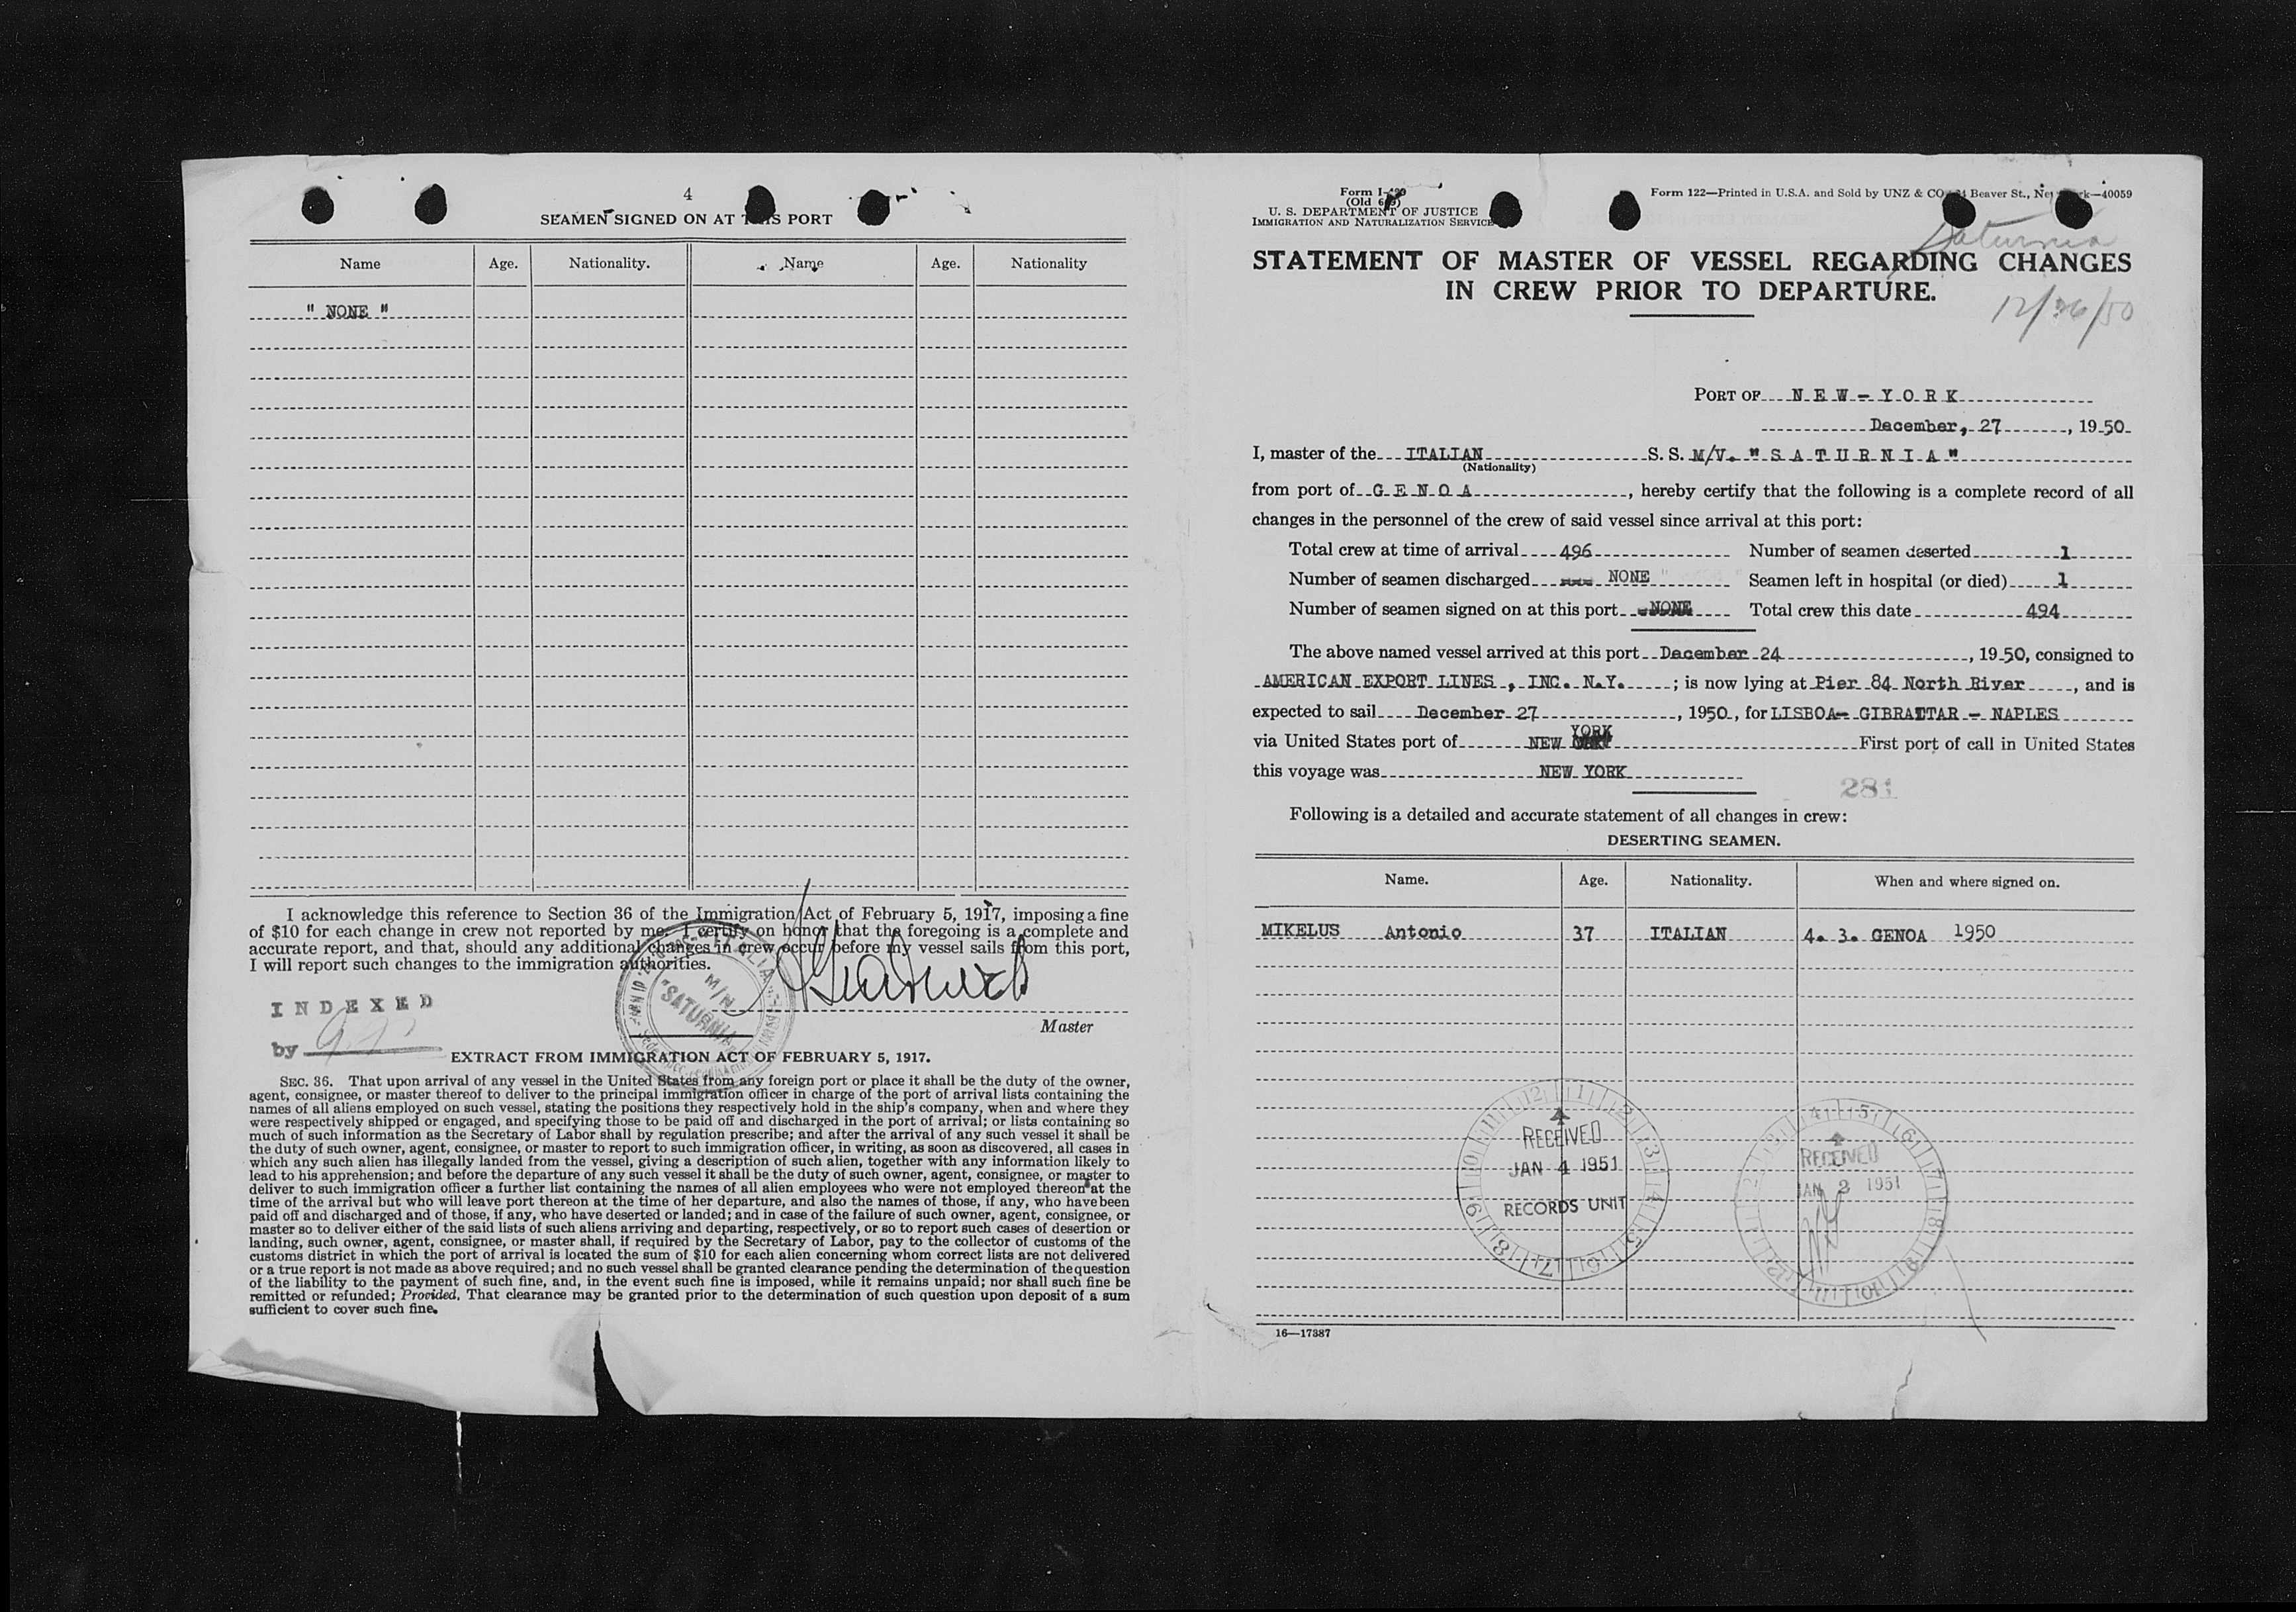 4
SEAMEN SIGNED ON AT THIS PORT
Name Age. Nationality. Name Age. Nationality
" NONE "
I acknowledge this reference to Section 36 of the Immigration Act of February 5, 1917, imposing a fine
of $10 for each change in crew not reported by me. I certify on honor that the foregoing is a complete and
accurate report, and that, should any additional changes in crew occur before my vessel sails from this port,
I will report such changes to the immigration authorities.
M/N
"SATURNIA"
INDEXED
by
Master
EXTRACT FROM IMMIGRATION ACT OF FEBRUARY 5, 1917.
SEC. 36. That upon arrival of any vessel in the United States from any foreign port or place it shall be the duty of the owner,
agent, consignee, or master thereof to deliver to the principal immigration officer in charge of the port of arrival lists containing the
names of all aliens employed on such vessel, stating the positions they respectively hold in the ship's company, when and where they
were respectively shipped or engaged, and specifying those to be paid off and discharged in the port of arrival; or lists containing so
much of such information as the Secretary of Labor shall by regulation prescribe; and after the arrival of any such vessel it shall be
the duty of such owner, agent, consignee, or master to report to such immigration officer, in writing, as soon as discovered, all cases in
which any such alien has illegally landed from the vessel, giving a description of such alien, together with any information likely to
lead to his apprehension; and before the departure of any such vessel it shall be the duty of such owner, agent, consignee, or master to
deliver to such immigration officer a further list containing the names of all alien employees who were not employed thereon at the
time of the arrival but who will leave port thereon at the time of her departure, and also the names of those, if any, who have been
paid off and discharged and of those, if any, who have deserted or landed; and in case of the failure of such owner, agent, consignee, or
master so to deliver either of the said lists of such aliens arriving and departing, respectively, or so to report such cases of desertion or
landing, such owner, agent, consignee, or master shall, if required by the Secretary of Labor, pay to the collector of customs of the
customs district in which the port of arrival is located the sum of $10 for each alien concerning whom correct lists are not delivered
or a true report is not made as above required; and no such vessel shall be granted clearance pending the determination of the question
of the liability to the payment of such fine, and, in the event such fine is imposed, while it remains unpaid; nor shall such fine be
remitted or refunded; Provided, That clearance may be granted prior to the determination of such question upon deposit of a sum
sufficient to cover such fine.
Form I-489
(Old 689)
U. S. DEPARTMENT OF JUSTICE
IMMIGRATION AND NATURALIZATION SERVICE
Form 122—Printed in U.S.A. and Sold by UNZ & CO., 24 Beaver St., New York—40059
Saturnia
STATEMENT OF MASTER OF VESSEL REGARDING CHANGES
IN CREW PRIOR TO DEPARTURE.
12/26/50
PORT OF NEW-YORK
December, 27, 1950
I, master of the ITALIAN S. S. M/V. "SATURNIA"
(Nationality)
from port of GENOA, hereby certify that the following is a complete record of all
changes in the personnel of the crew of said vessel since arrival at this port:
Total crew at time of arrival 496 Number of seamen deserted 1
Number of seamen discharged NONE " Seamen left in hospital (or died) 1
Number of seamen signed on at this port NONE Total crew this date 494
The above named vessel arrived at this port December 24, 1950, consigned to
AMERICAN EXPORT LINES , INC. N.Y. ; is now lying at Pier 84 North River, and is
expected to sail December 27, 1950, for LISBOA- GIBRALTAR - NAPLES
via United States port of NEW YORK First port of call in United States
this voyage was NEW YORK
281
Following is a detailed and accurate statement of all changes in crew:
DESERTING SEAMEN.
Name. Age. Nationality. When and where signed on.
MIKELUS Antonio 37 ITALIAN 4. 3. GENOA 1950
RECEIVED
JAN 4 1951
RECORDS UNIT
RECEIVED
JAN 2 1951
16—17387